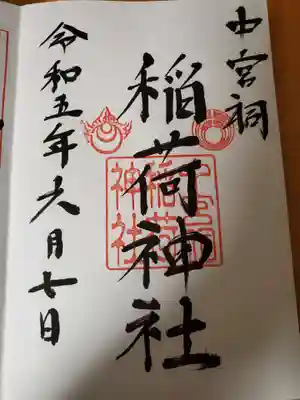 中宮祠
稲荷神社
中宮祠
稲荷
神社
令和五年六月七日